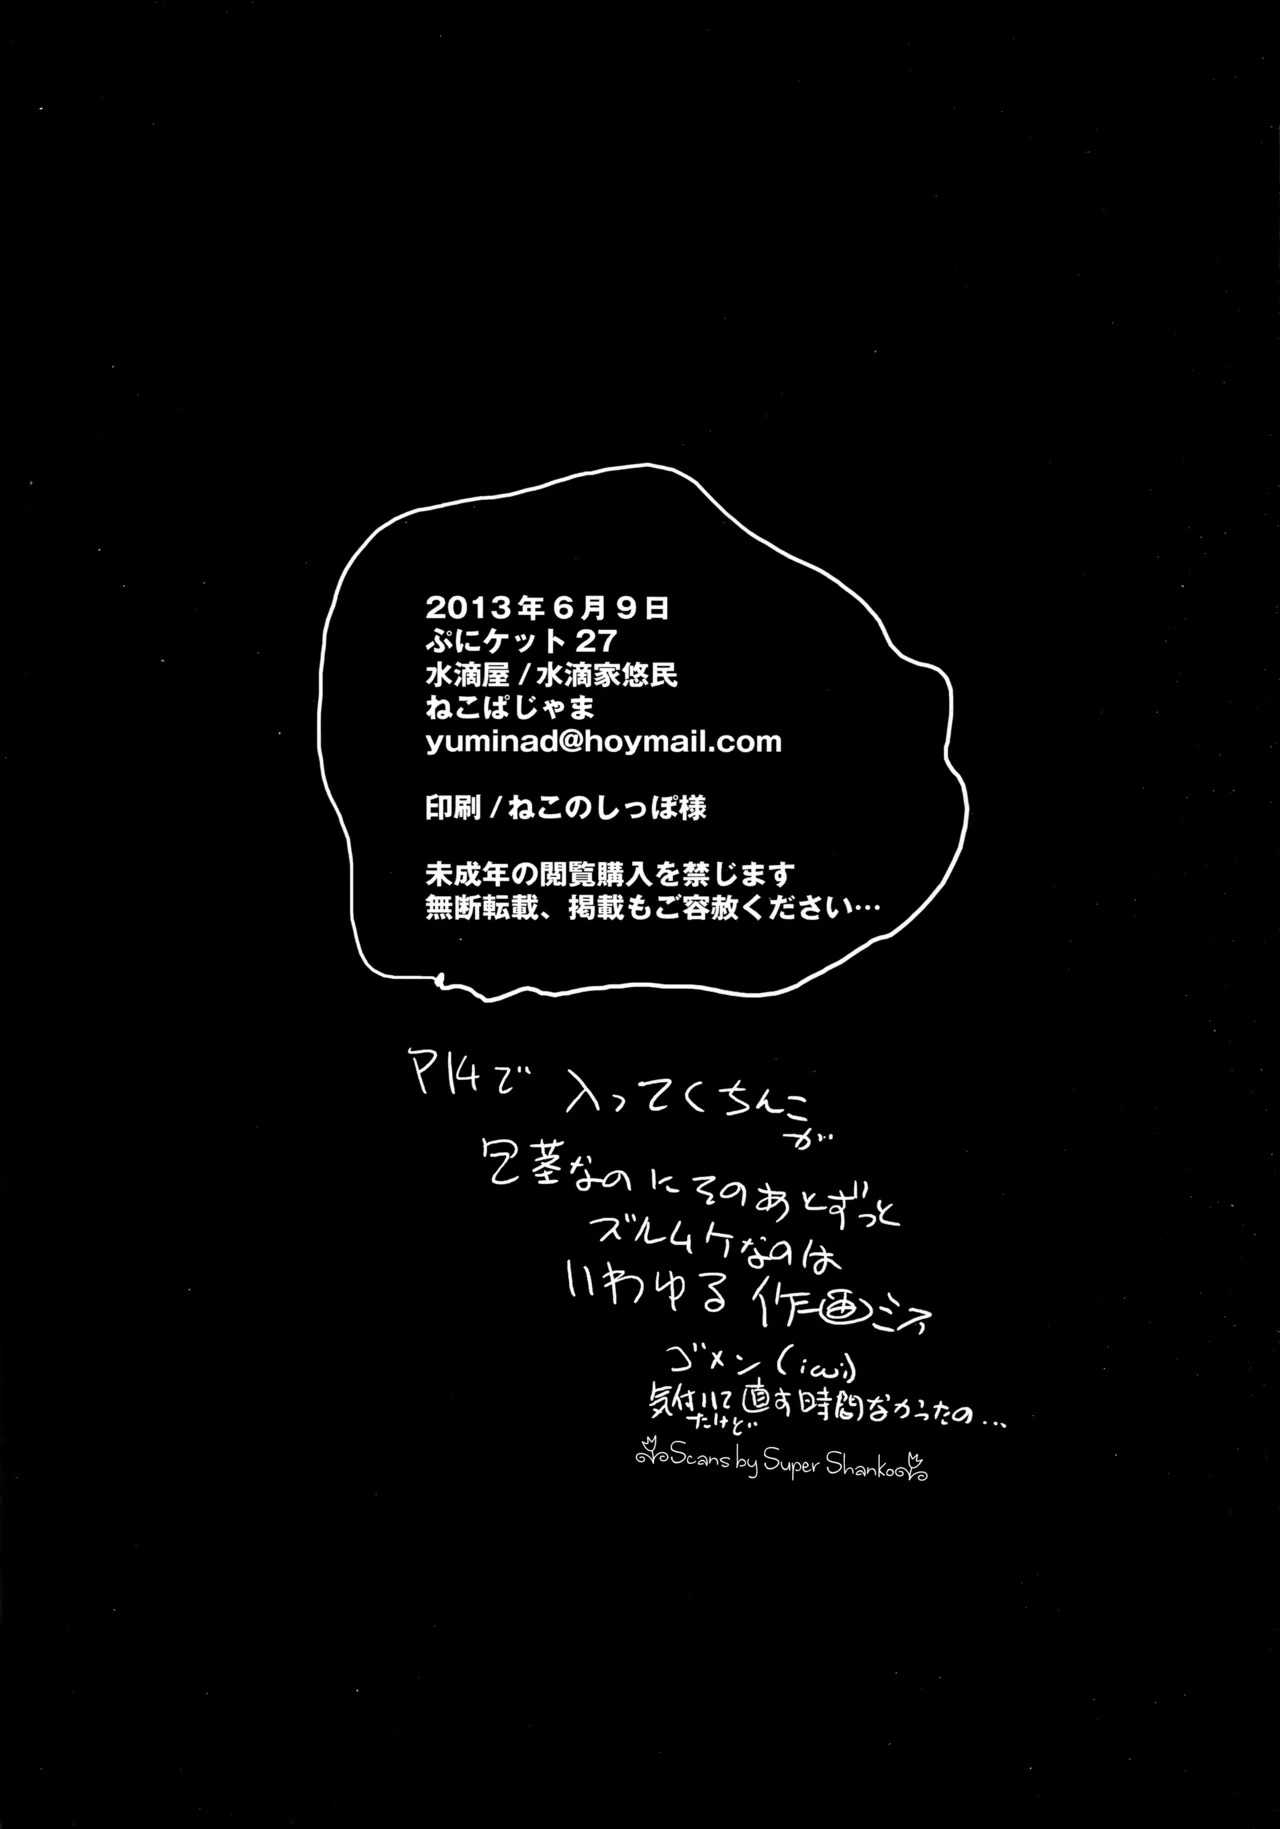 2013年6月9日
ぷにケット27
水滴屋/水滴家悠民
ねこぱじゃま
yuminad@hoymail.com
印刷/ねこのしっぽ様
未成年の閲覧購入を禁じます
無断転載、掲載もご容赦ください…
P14で 入ってくちんこが
包茎なのにそのあとずっと
ズルムケなのは
いわゆる作画ミス
ゴメン(iωi)
気付いてたけど直す時間なかったの...
Scans by Super Shanko